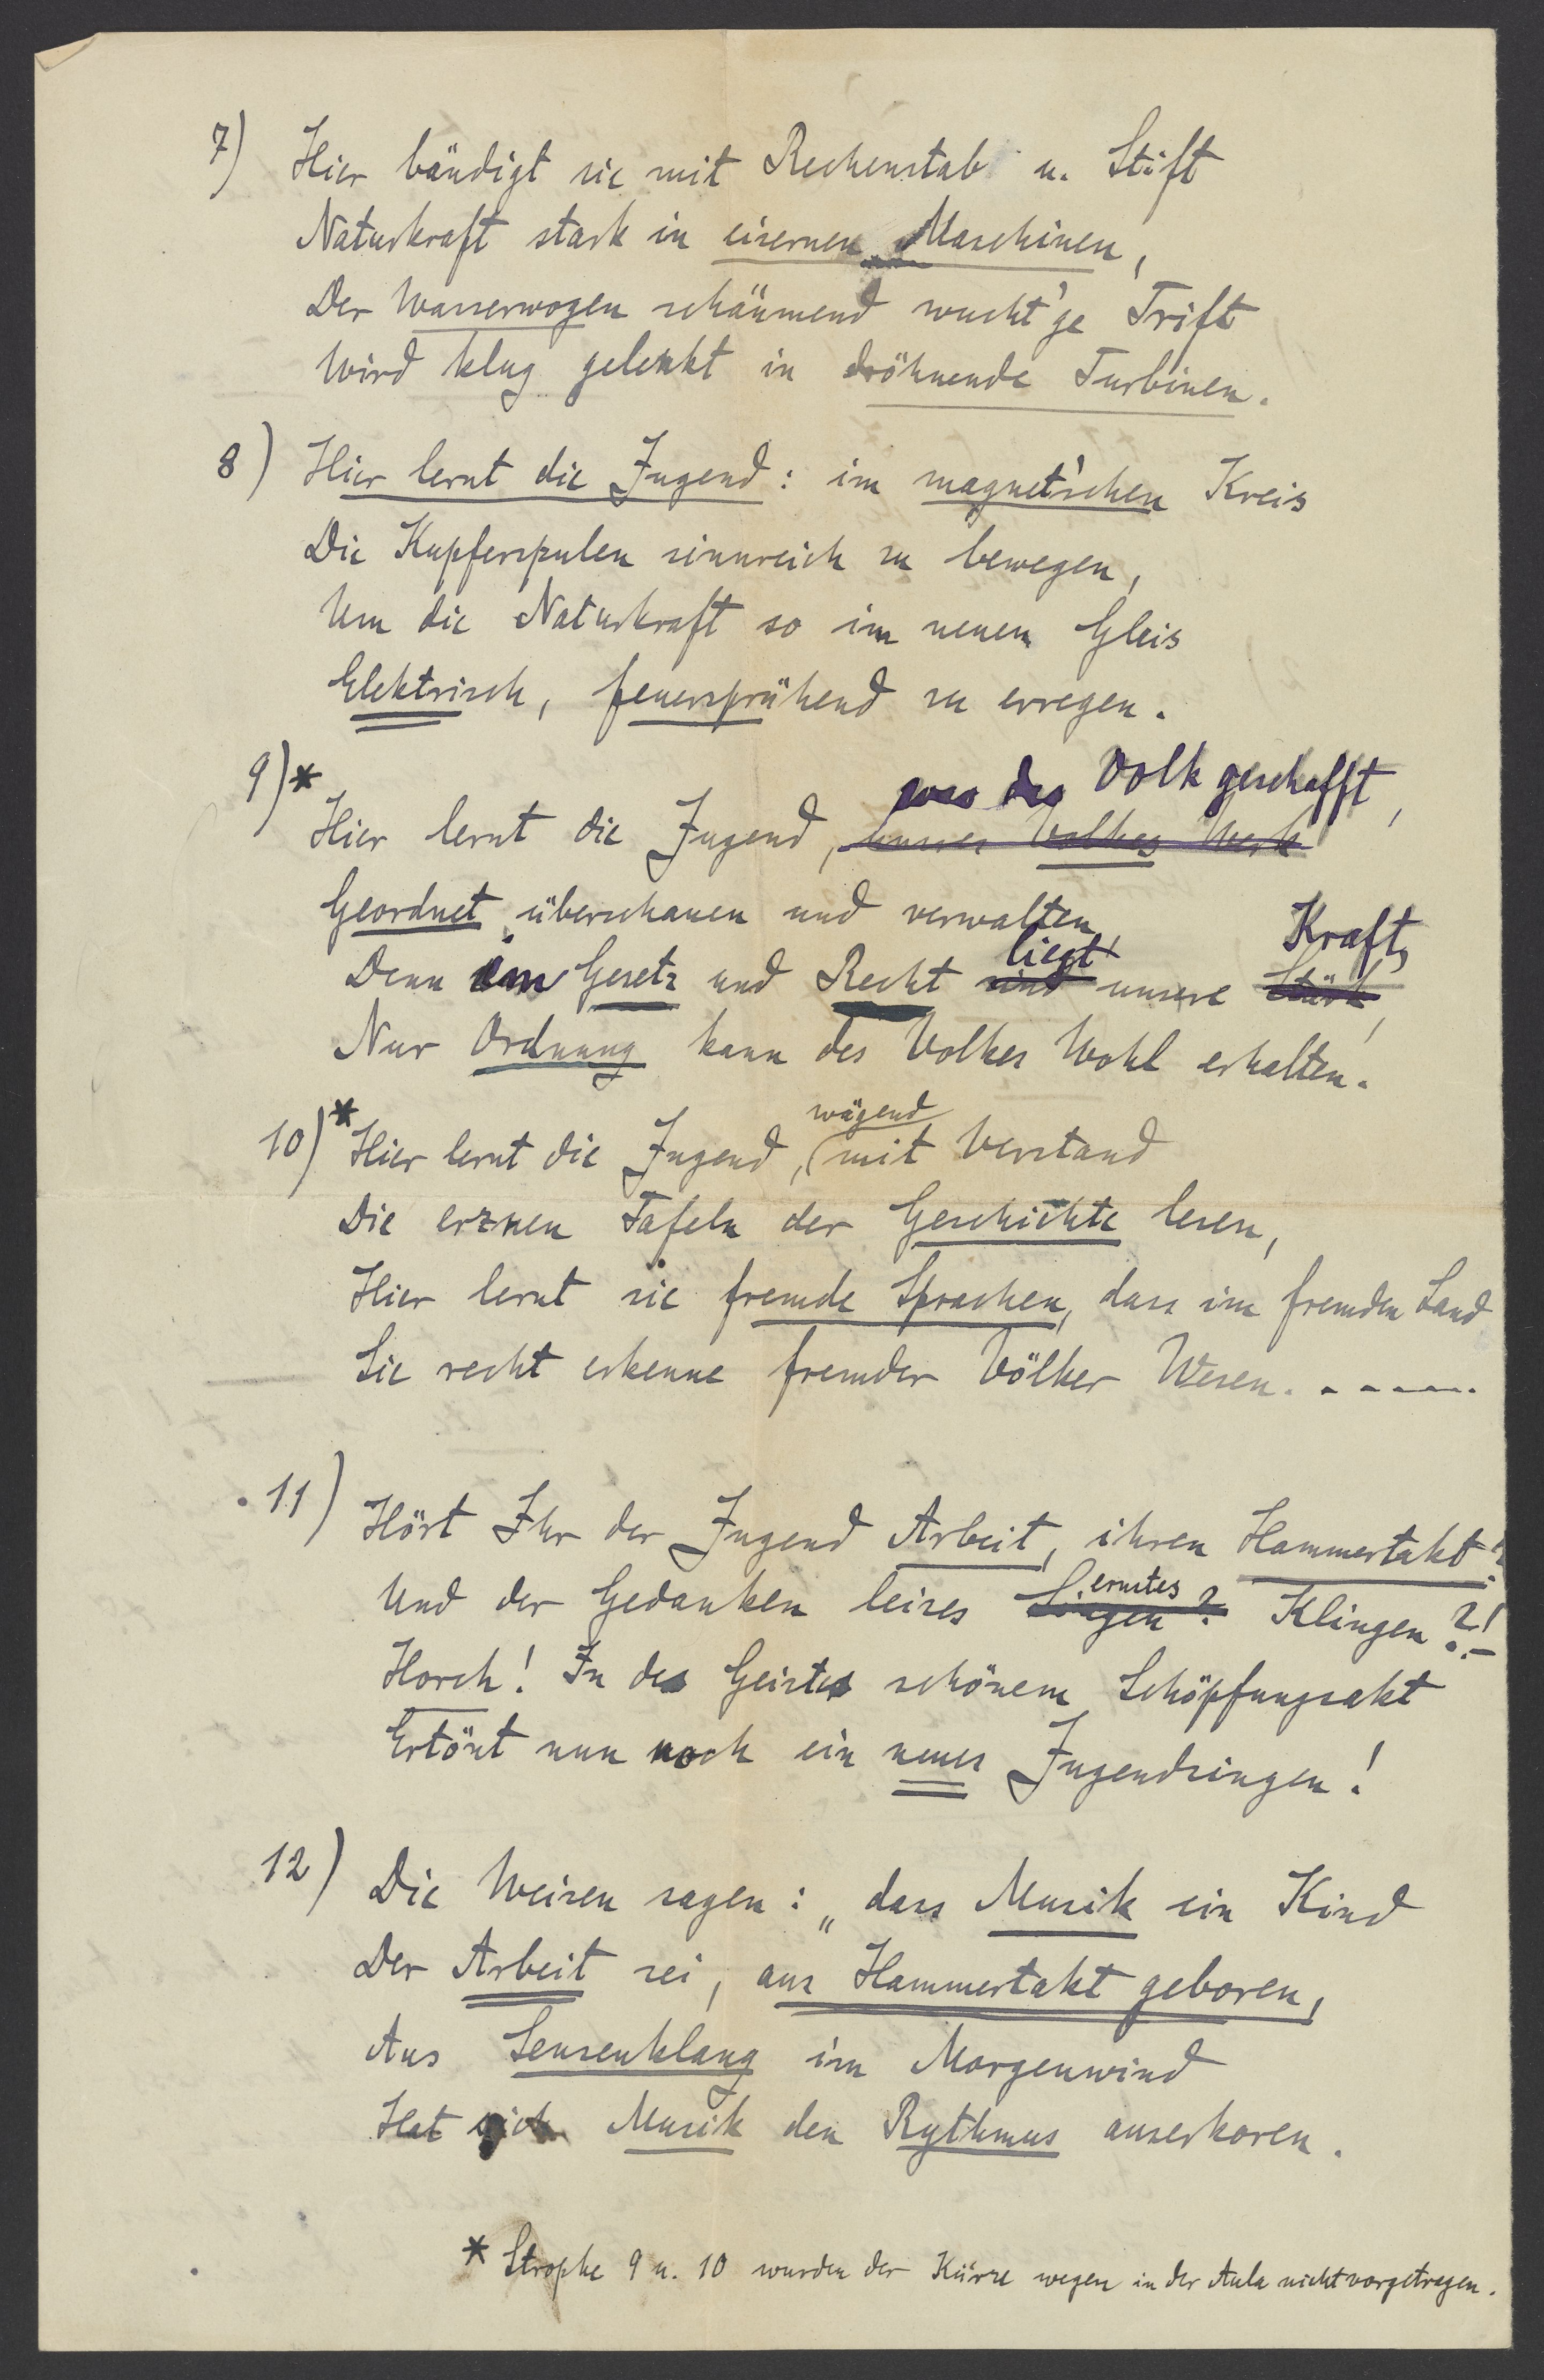 7) Hier bändigt sie mit Rechenstab u. Stift
Naturkraft stark in eisernen Maschinen,
Der Wasserwogen schäumend wucht'ge Trift
Wird klug gelenkt in dröhnende Turbinen.
8) Hier lernt die Jugend: im magnet'schen Kreis
Die Kupferspulen sinnreich zu bewegen,
Um die Naturkraft so im neuen Gleis
Elektrisch, feuersprühend zu erregen.
was das Volk geschafft,
9)* Hier lernt die Jugend, unsres Volkes Werk
Geordnet überschauen und verwalten,
liegt Kraft,
Denn im Gesetz und Recht sind unsere Stärk,
Nur Ordnung kann des Volkes Wohl erhalten.
wägend
10)* Hier lernt die Jugend, mit Verstand
Die erznen Tafeln der Geschichte lesen,
Hier lernt sie fremde Sprachen, dass im fremden Land
Sie recht erkenne fremder Völker Wesen. . - - - - .
11) Hört Ihr der Jugend Arbeit, ihren Hammertakt?
ernstes
Und der Gedanken leises Singen? Klingen?!-
Horch! In des Geistes schönem Schöpfungsakt
Ertönt nun noch ein neues Jugendsingen!
12) Die Weisen sagen: „dass Musik ein Kind
Der Arbeit sei, aus Hammertakt geboren,
Aus Sensenklang im Morgenwind
Hat sich Musik den Rythmus auserkoren.
* Strophe 9 u. 10 wurden der Kürze wegen in der Aula nicht vorgetragen.